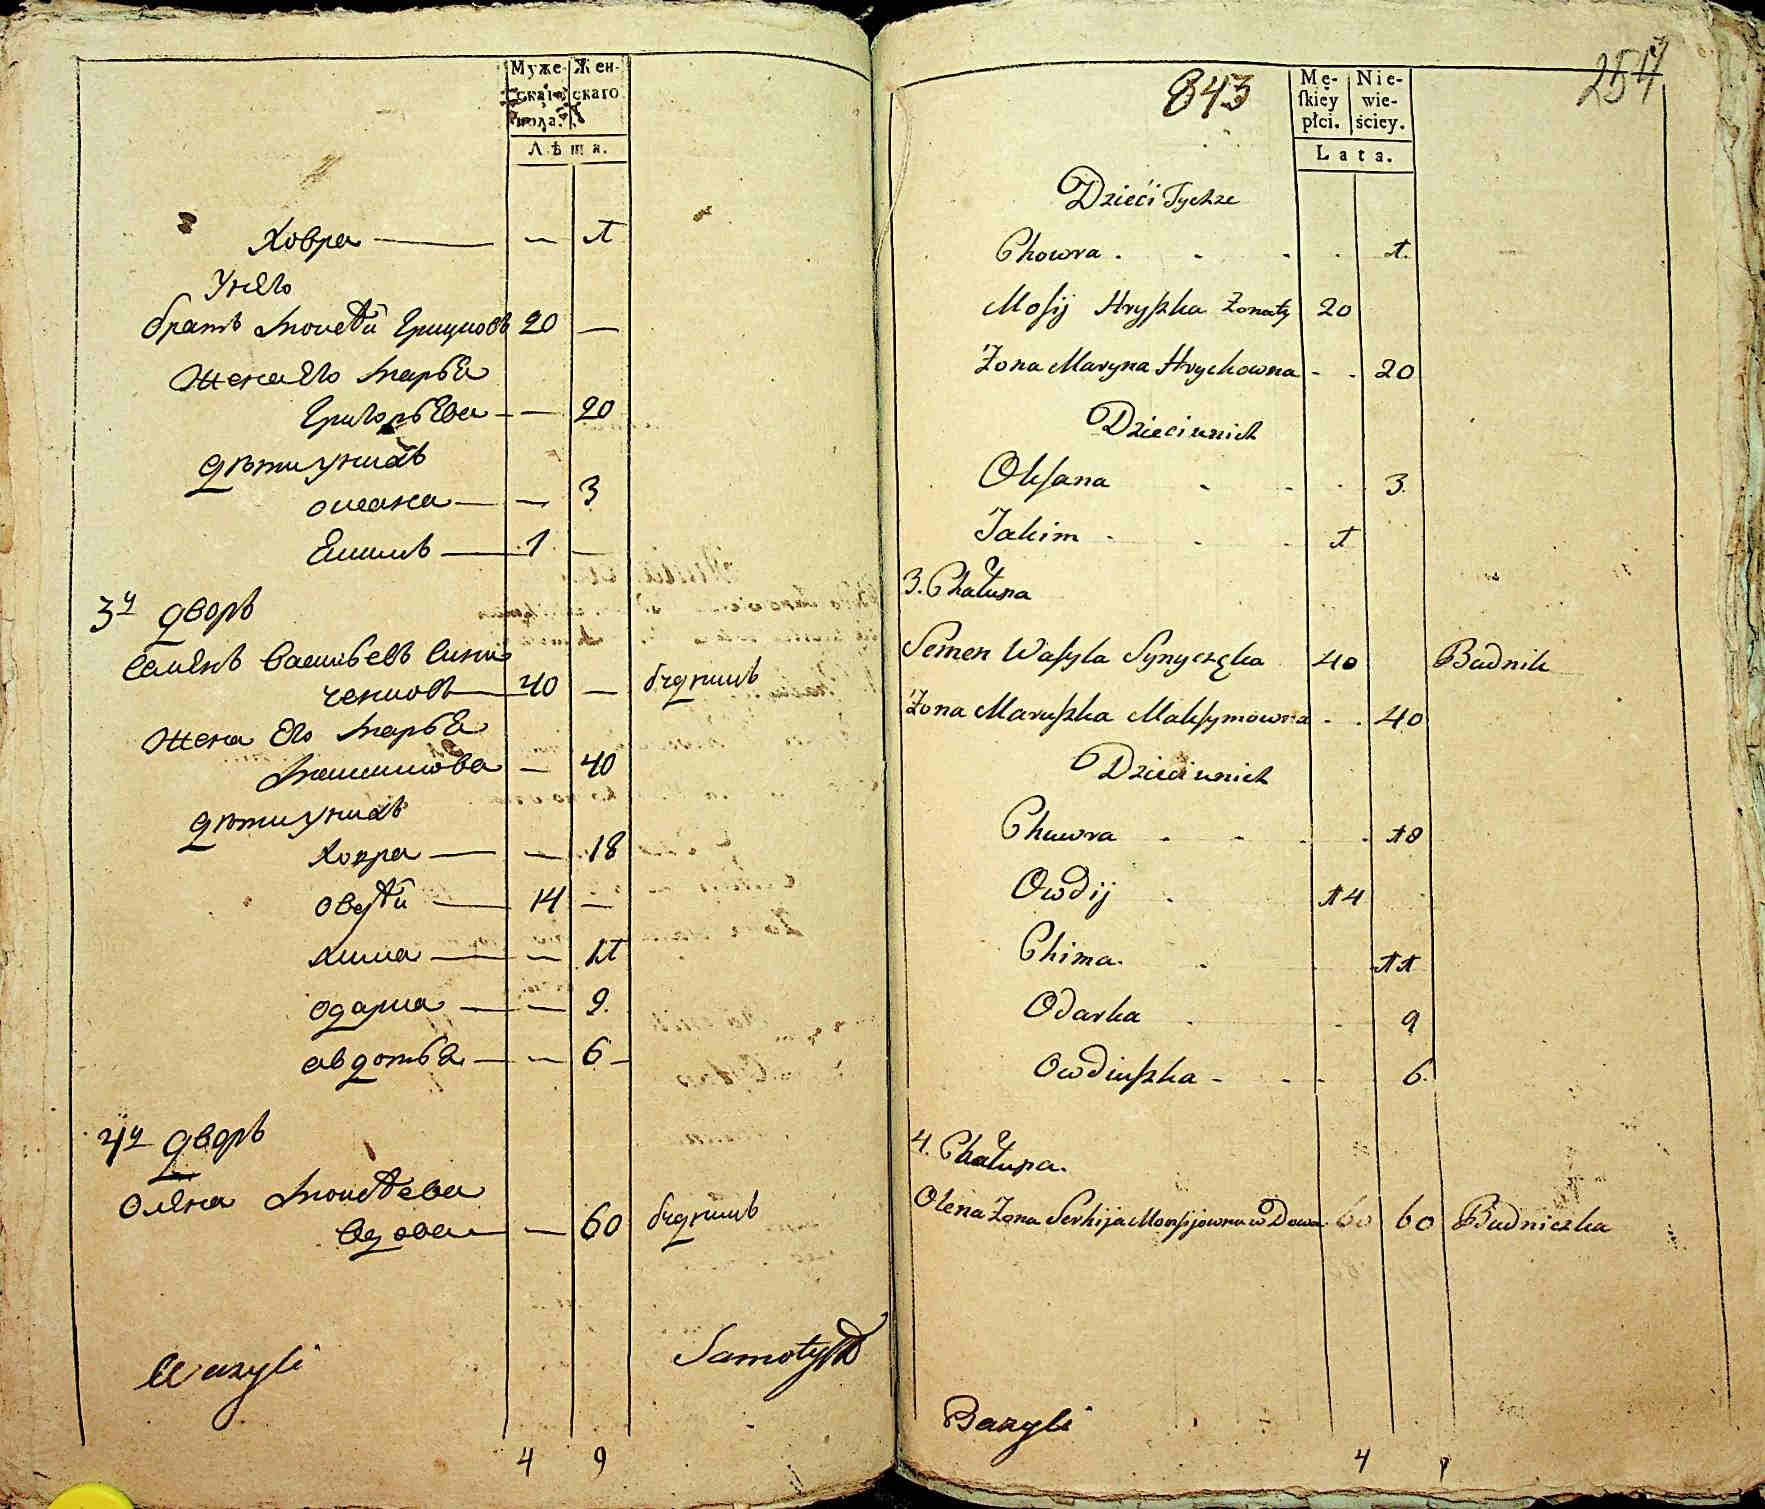 Муже- Жен-
скаго скаго
пола.
Лѣта.
Ховра — — 1
У него
братъ Моисей Грицковъ 20 —
Жена его Марья
Григорьева — — 20
дѣти у нихъ
Оксана — — 3
Екимъ — 1 —
3й дворъ
Семенъ Васильевъ Сини
ченковъ — 40 — будникъ
Жена его Марья
Максимова — 40
дѣти у нихъ
Ховра — — 18
Овдѣй — 14 —
Хима — — 11
Одарка — — 9.
Авдотья — — 6 —
4й дворъ
Олена Моисеева
вдова — — 60 будникъ
Bazyli Samoty
4 9
843
254
Mę- Nie-
ſkiey wie-
płci. ściey.
Lata.
Dzieci Tychże
Chowra . . . . 1.
Moſij Hryſzka Żonaty 20
Żona Maryna Hrychowna - . 20
Dzieci unich
Okſana . . . 3.
Jakim . . . 1
3. Chałupa
Semen Waſyla Synyczęka 40 Budnik
Żona Maruſzka Makſymowna . . 40
Dzieci unich
Chuwra . . . . 18
Owdij . 14
Chima . . . 11
Odarka . . 9
Owdiuſzka - . . 6.
4. Chałupa.
Olena Żona Serhija Moysijowna wDowa 60 60 Budniczka
Bazyli
4